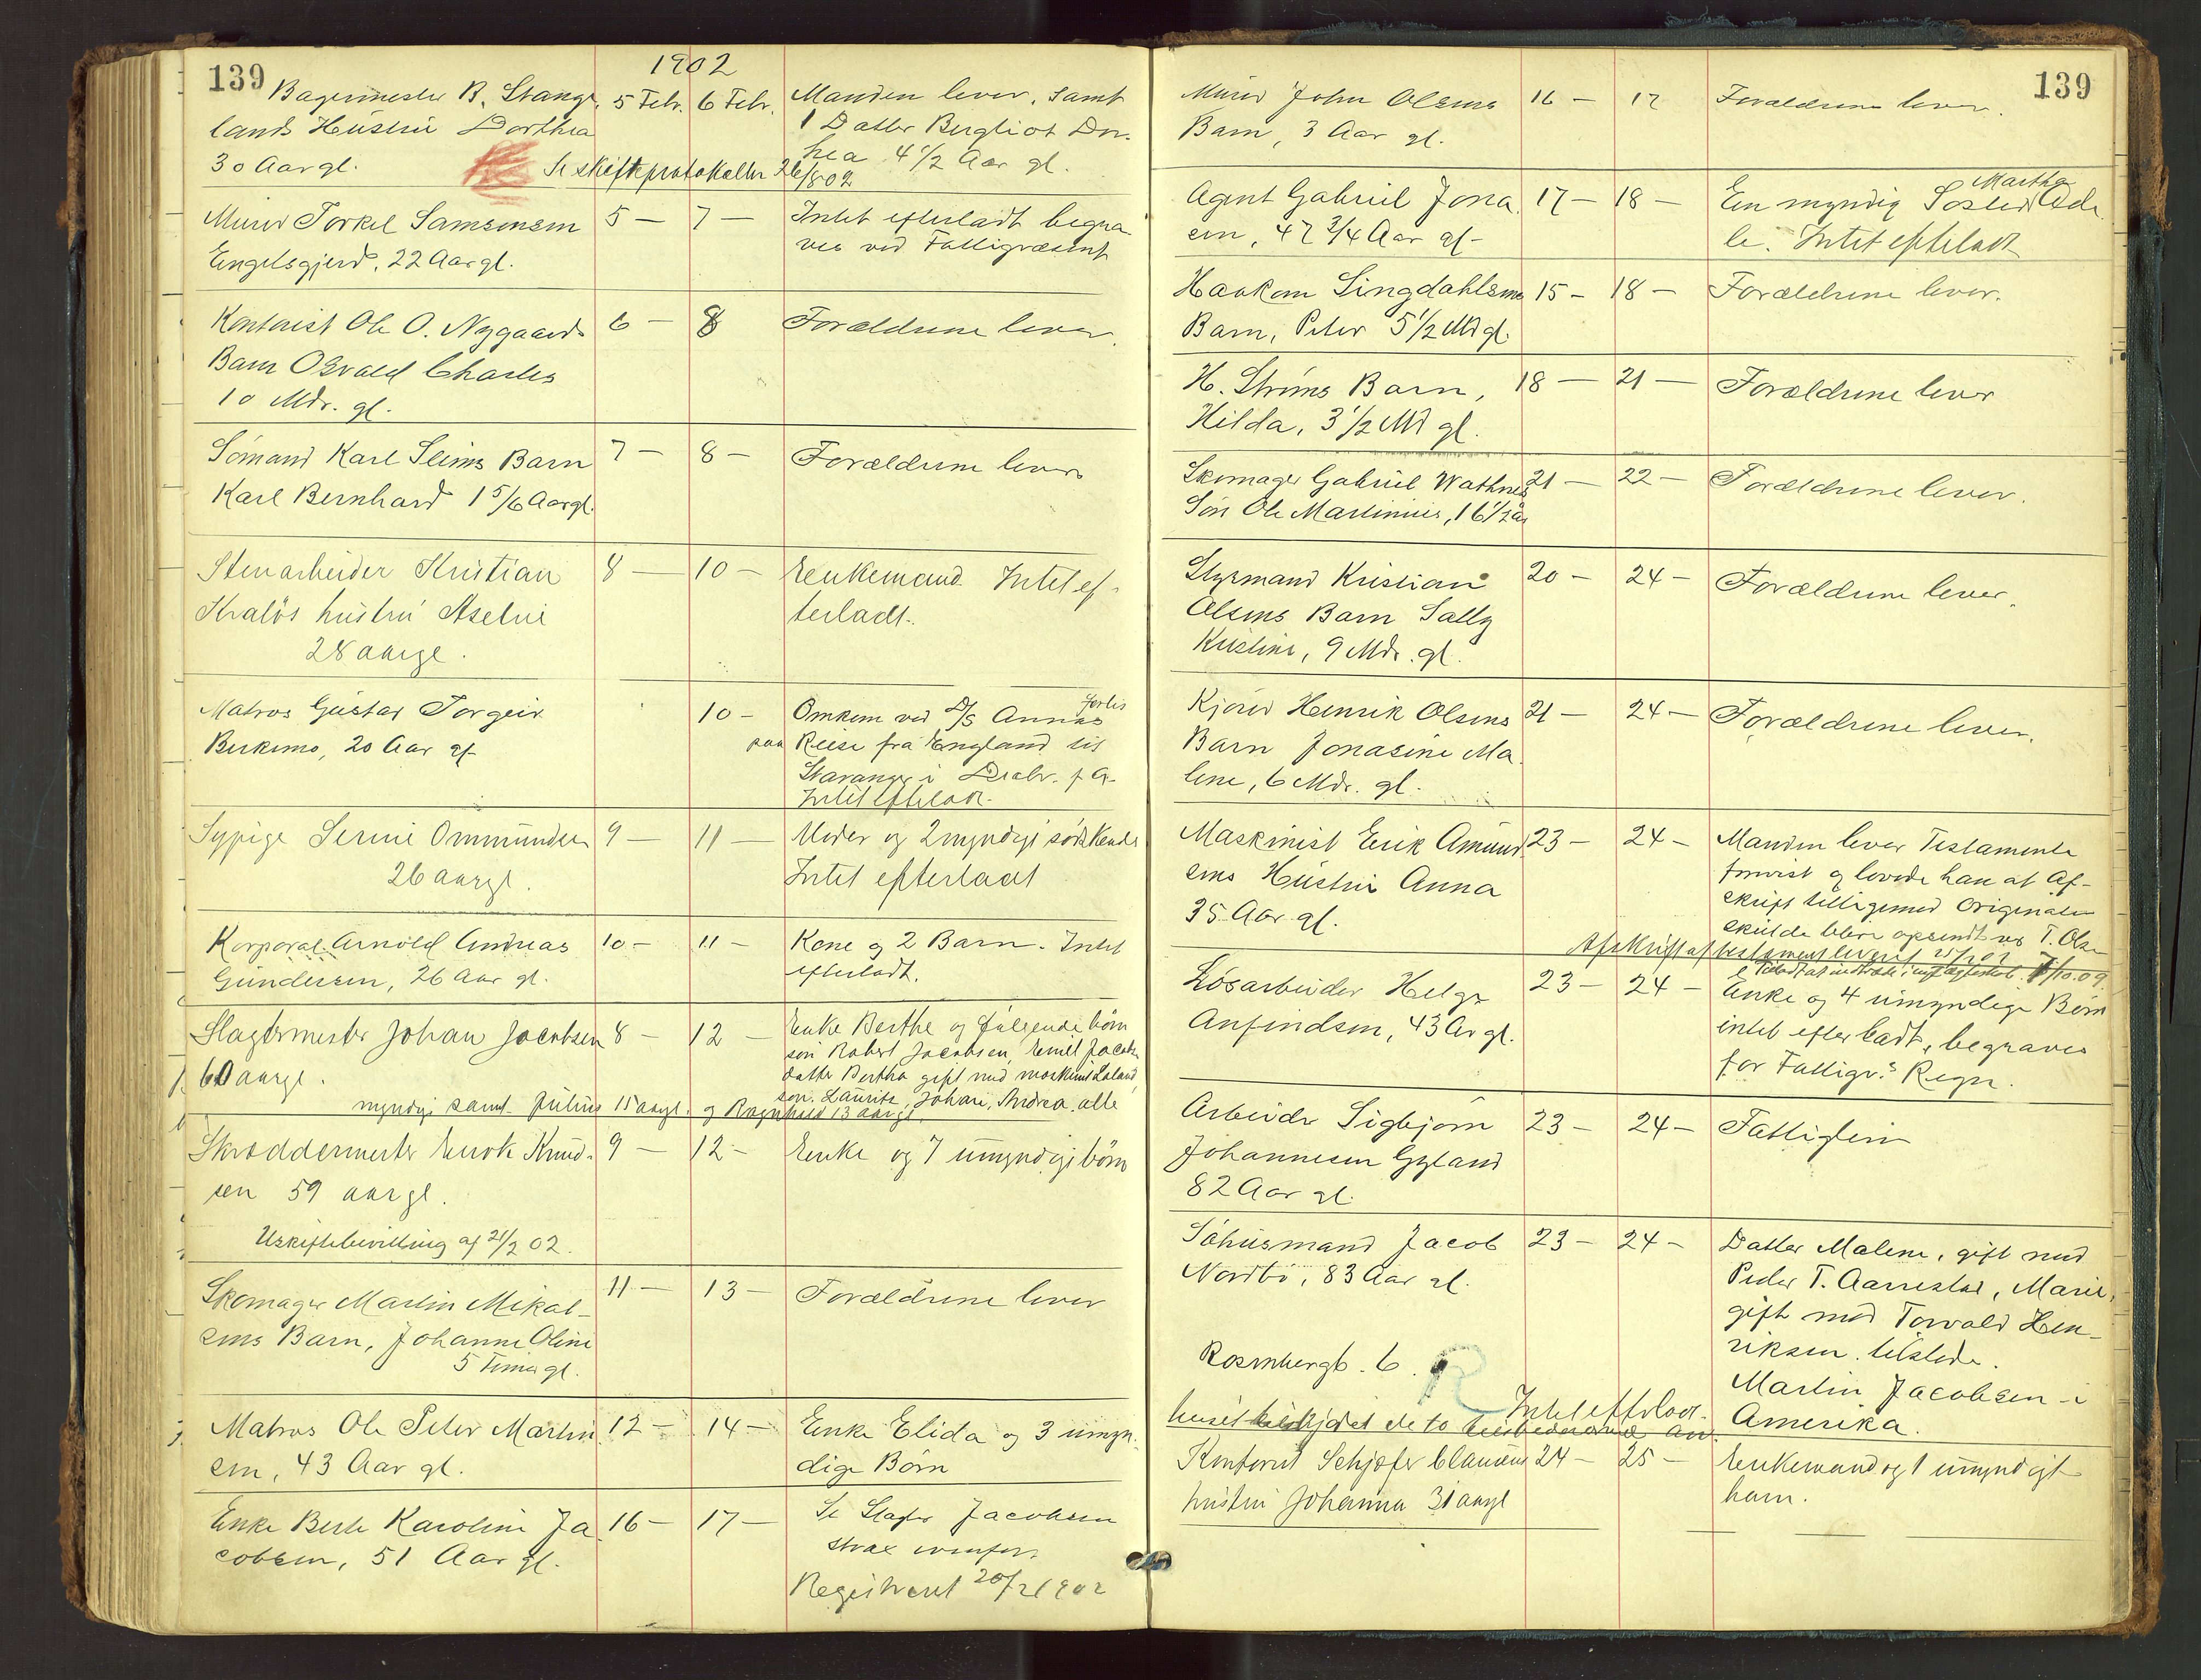 139
1902
Bagermester B. Stange
lands Hustru Dorthea
30 Aar gl.
5 Febr. 6 Febr.
Manden lever, samt
1 Datter Bergliot Dor-
thea 4 1/2 Aar gl.
Se skifteprotokollen 26/8 02
Murer Torkel Samsonsen
Engelsgjerd, 22 Aar gl.
5 — 7 —
Intet efterladt begra
ves ved Fattigvæsent
Kontorist Ole O. Nygaards
Barn Osvald Charles
10 Mdr. gl.
6 — 8
Forældrene lever.
Sömand Karl Seims Barn
Karl Bernhard 1 5/6 Aar gl.
7 — 8 —
Forældrene lever
Stenarbeider Kristian
hustru Aseline
28 aar gl.
8 — 10 —
Enkemand. Intet ef-
terladt.
Matros Gustav Torgeir
Birkemo, 20 Aar gl.
10 —
Omkom ved D/S Annas forlis
paa Reise fra England til
Stavanger i Decbr. f. A.
Intet efterladt.
Sypige Serine Ommundsen
26 aar gl.
9 — 11 —
Moder og 2 myndige södskende
Intet efterladt
Korporal Arnold Andreas
Gundersen, 26 Aar gl.
10 — 11 —
Kone og 2 Barn. Intet
efterladt.
Slagtermester Johan Jacobsen
60 aar gl.
8 — 12 —
Enke Berthe og fölgende börn
sön Robert Jacobsen, Emil Jacobsen
datter Bertha gift med maskinist Laland,
sön Laurits, Johan, Andrea, alle
myndige samt Julius 15 aar gl. og Ragnhild 13 aar gl.
Skræddermester Enok Knud-
sen 59 aar gl.
9 — 12 —
Enke og 7 umyndige börn
Uskiftebevilling af 21/2 02.
Skomager Martin Mikal-
sens Barn, Johanne Oline
5 Timer gl.
11 — 13 —
Forældrene lever
Matros Ole Peter Martin
sen, 43 Aar gl.
12 — 14 —
Enke Elida og 3 umyn-
dige Börn
Enke Berte Karoline Ja
cobsen, 51 Aar gl.
16 — 17 —
Se Slagter Jacobsen
strax ovenfor.
Registreret 20/2 1902
139
Murer John Olsens
Barn, 3 Aar gl.
16 — 17
Forældrene lever.
Agent Gabriel Jona
sen, 47 3/4 Aar gl.
17 — 18 —
Martha
En myndig Söster Ade
le. Intet efterladt
Haakon Lingdahlsens
Barn, Peter 5 1/2 Md gl.
15 — 18 —
Forældrene lever.
H. Ströms Barn,
Hilda, 3 1/2 Md gl.
18 — 21 —
Forældrene lever
Skomager Gabriel Wathnes
Sön Ole Martinius, 16 1/2 aar
21 — 22 —
Forældrene lever.
Styrmand Kristian
Olsens Barn Sally
Kristine, 9 Mdr. gl.
20 — 24 —
Forældrene lever.
Kjörer Henrik Olsens
Barn Jonasine Ma
lene, 6 Mdr. gl.
21 — 24 —
Forældrene lever.
Maskinist Erik Amund
sens Hustru Anna
35 Aar gl.
23 — 24 —
Manden lever Testamente
forevist og lovede han at Af-
skrift tilligemed Originalen
skulde blive opsendt ved T. Olsen
Afskrift af testament leveret 25/2 02
Lösarbeider Helge
Anfindsen, 43 Aar gl.
23 — 24 —
Enke og 4 umyndige Börn
intet efterladt, begraves
for Fattigv.s Regn.
Arbeider Sigbjörn
Johannesen Gyland
82 Aar gl.
23 — 24 —
Fattiglem
Söhusmand Jacob
Nordbö, 83 Aar gl.
23 — 24 —
Datter Malene, gift med
Peder T. Aarrestad, Marie,
gift med Torvald Hen-
riksen tilstede.
Martin Jacobsen i
Amerika.
Rosenbergt. 6.
Intet efterladt.
huset de to
Kontorist Schjøfer Clausens
hustru Johanna 31 aar gl
24 — 25 —
Enkemand og 1 umyndigt
barn.